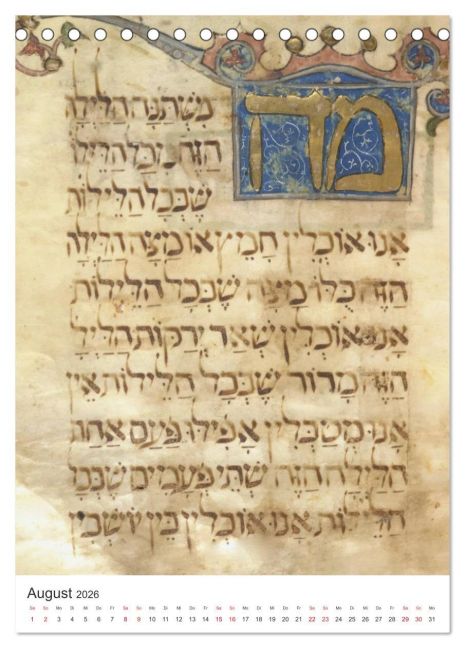 מה
מִשְׁתַּנָּה הַלַּיְלָה
הַזֶּה מִכָּל הַלֵּילוֹ
שֶׁבְּכָל הַלֵּילוֹת
אָנוּ אוֹכְלִין חָמֵץ אוֹ מַצָּה הַלַּיְלָה
הַזֶּה כֻּלּוֹ מַצָּה שֶׁבְּכָל הַלֵּילוֹת
אָנוּ אוֹכְלִין שְׁאָר יְרָקוֹת הַלַּיְלָ
הַזֶּה מָרוֹר שֶׁבְּכָל הַלֵּילוֹת אֵין
אָנוּ מְטַבְּלִין אֲפִילוּ פַּעַם אַחַת
הַלַּיְלָה הַזֶּה שְׁתֵּי פְּעָמִים שֶׁבְּכָל
הַלֵּילוֹת אָנוּ אוֹכְלִין בֵּין יוֹשְׁבִין
August 2026
Sa So Mo Di Mi Do Fr Sa So Mo Di Mi Do Fr Sa So Mo Di Mi Do Fr Sa So Mo Di Mi Do Fr Sa So Mo
1 2 3 4 5 6 7 8 9 10 11 12 13 14 15 16 17 18 19 20 21 22 23 24 25 26 27 28 29 30 31